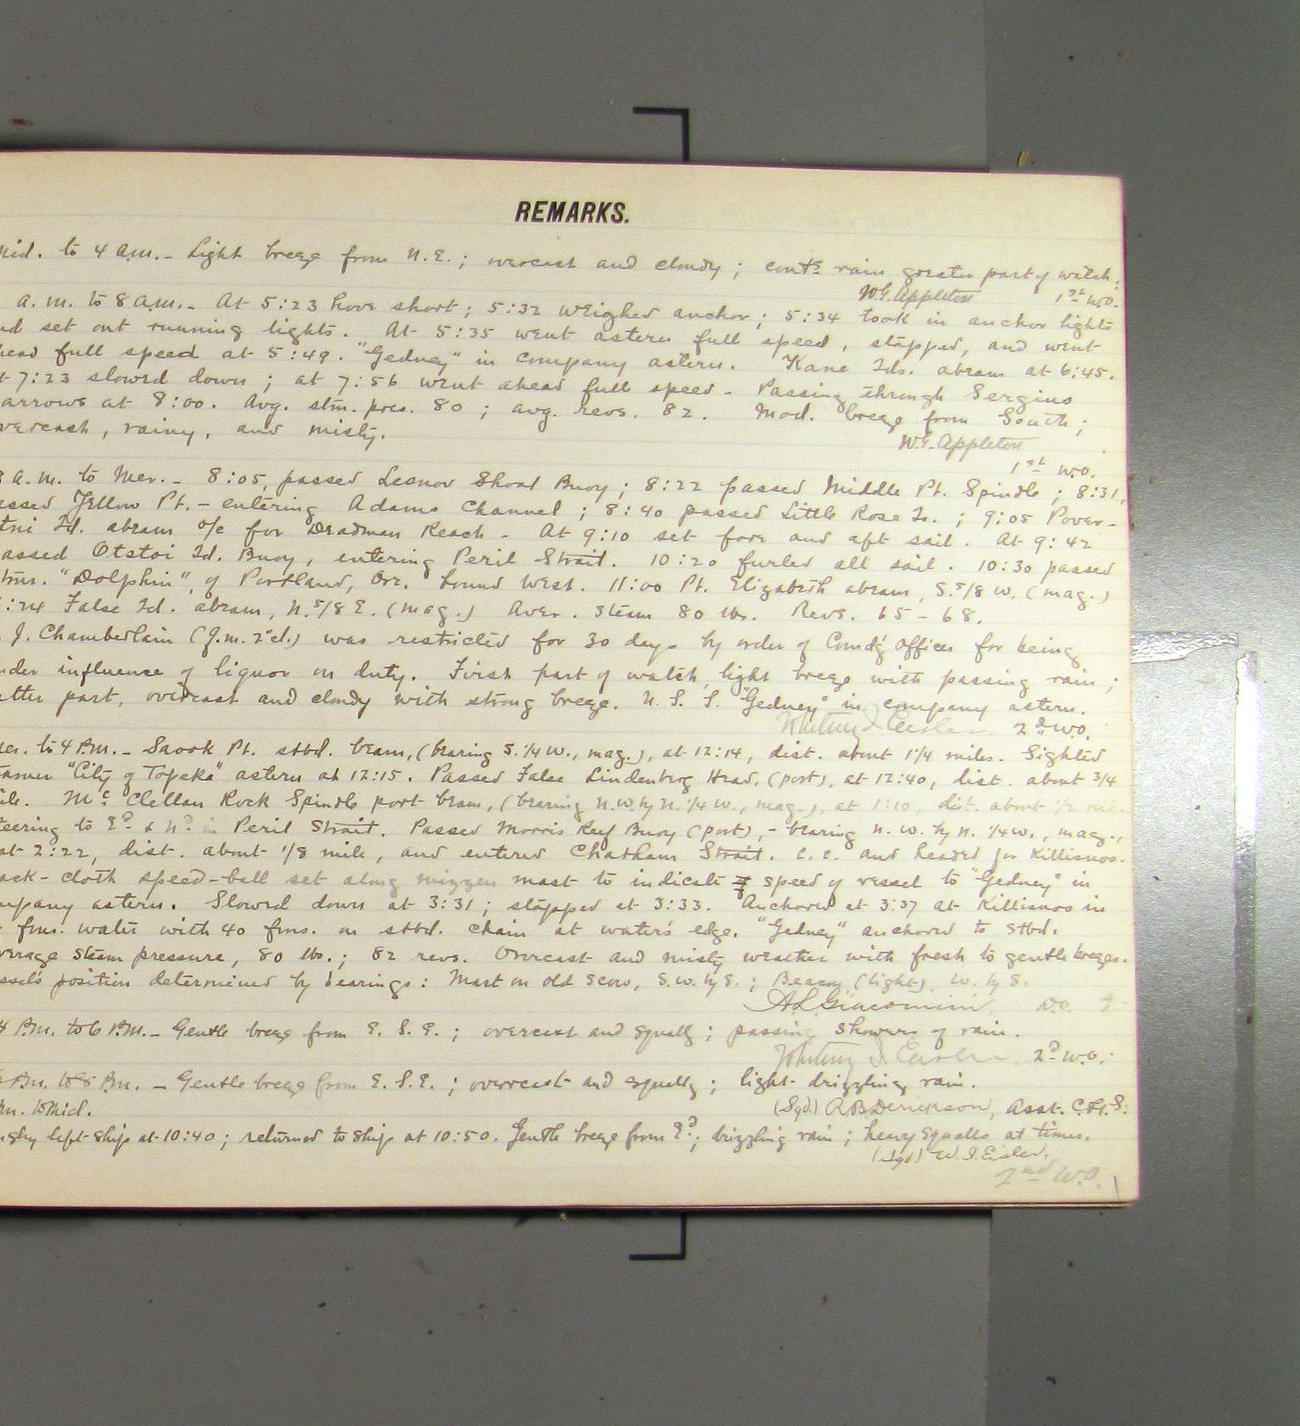 REMARKS.
Mid. to 4 a.m. - Light breeze from N.E.; overcast and cloudy; contd. rain greater part of watch.
W.G. Appleton 1st W.O.
a.m. to 8 a.m. - At 5:23 hove short; 5:32 weighed anchor; 5:34 took in anchor lights
and set out running lights. At 5:35 went astern full speed, stopped, and went
ahead full speed at 5:49. "Gedney" in company astern. Kane Ids. abeam at 6:45.
At 7:23 slowed down; at 7:56 went ahead full speed - Passing through Sergius
Narrows at 8:00. Avg. stm. pres. 80; avg. revs. 82. Mod. breeze from South;
overcast, rainy, and misty.
W.G. Appleton
1st W.O.
8 a.m. to Mer. - 8:05, passed Lesnoi Shoal Buoy; 8:22 passed Middle Pt. Spindle; 8:31,
passed Yellow Pt. - entering Adams Channel; 8:40 passed Little Rose Is.; 9:05 Pover-
otni Id. abeam c/c for Deadman Reach - At 9:10 set fore and aft sail. At 9:42
passed Otstoi Id. Buoy, entering Peril Strait. 10:20 furled all sail. 10:30 passed
stmr. "Dolphin", of Portland, Ore. bound West. 11:00 Pt. Elizabeth abeam, S. 5/8 W. (mag.)
:24 False Id. abeam, N. 5/8 E. (mag.) Aver. steam 80 lbs. Revs. 65 - 68.
J. Chamberlain (Q.m. 2 cl.) was restricted for 30 days by order of Comd'g Officer for being
under influence of liquor on duty. First part of watch, light breeze with passing rain;
latter part, overcast and cloudy with strong breeze. U.S.S. "Gedney" in company astern.
2nd W.O.
Mer. to 4 P.M. - Saook Pt. stbd. beam, (bearing S. 1/4 W., mag.), at 12:14, dist. about 1 1/4 miles. Sighted
steamer "City of Topeka" astern at 12:15. Passed False Lindenberg Head, (port), at 12:40, dist. about 3/4
mile. McClellan Rock Spindle port beam, (bearing N.W. by N. 1/4 W., mag.), at 1:10, dist. about 1/2 mi.
Steering to Ed. & Nd. in Peril Strait. Passed Morris Reef Buoy (port), - bearing N.W. by N. 1/4 W., mag.,
at 2:22, dist. about 1/8 mile, and entered Chatham Strait. C.C. and headed for Killisnoo.
Black-cloth speed-ball set along mizzen mast to indicate speed of vessel to "Gedney" in
company astern. Slowed down at 3:31; stopped at 3:33. Anchored at 3:37 at Killisnoo in
fms. water with 40 fms. on stbd. chain at water's edge. "Gedney" anchored to stbd.
Average steam pressure, 80 lbs.; 82 revs. Overcast and misty weather with fresh to gentle breezes.
Vessel's position determined by bearings: Mast on old scow, S.W. by S.; Beacon (light), W. by S.
A.L. Giacomini, W.O.
4 P.M. to 6 P.M. - Gentle breeze from E.S.E.; overcast and squally; passing showers of rain.
2d W.O.
6 P.M. to 8 P.M. - Gentle breeze from E.S.E.; overcast and squally; light drizzling rain.
(Sgd) R.B. Derickson, Asst. C.&G.S.
P.M. to Mid.
left ship at 10:40; returned to ship at 10:50. Gentle breeze from Ed.; drizzling rain; heavy squalls at times.
(Sgd) W.I. Eisler.
2nd W.O.